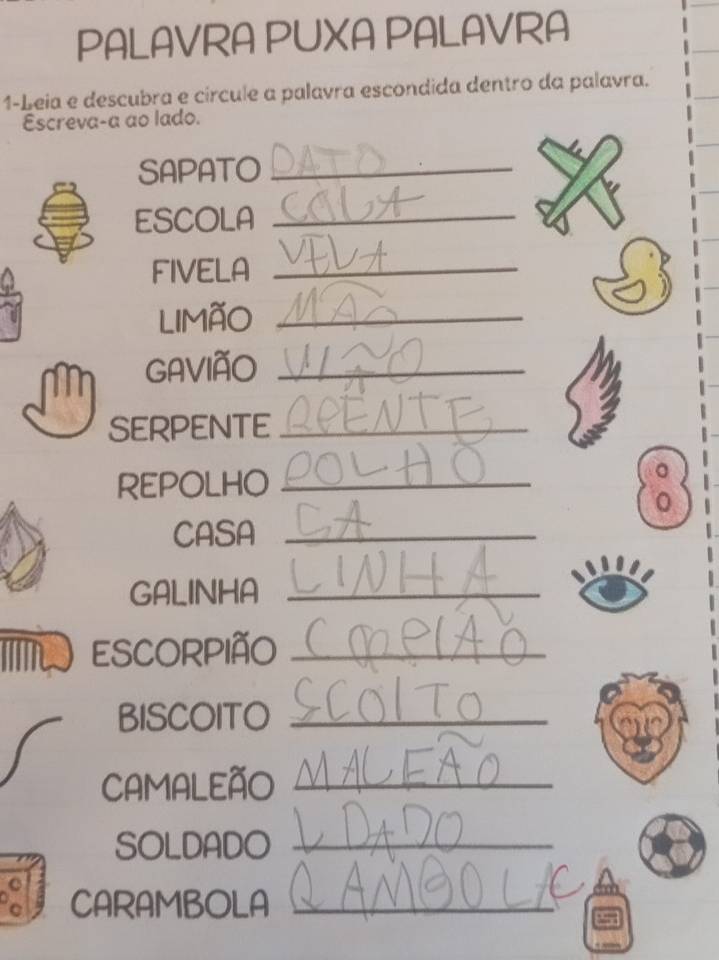 PALAVRA PUXA PALAVRA
1-Leia e descubra e circule a palavra escondida dentro da palavra.
Escreva-a ao lado.
SAPATO PATO
ESCOLA COLA
FIVELA VELA
LIMÃO MÃO
GAVIÃO VIÃO
SERPENTE RPENTE
REPOLHO POLHO
CASA CA
GALINHA LINHA
ESCORPIÃO CORPIÃO
BISCOITO SCOITO
CAMALEÃO MALEÃO
SOLDADO LDADO
CARAMBOLA RAMBOLA C
8